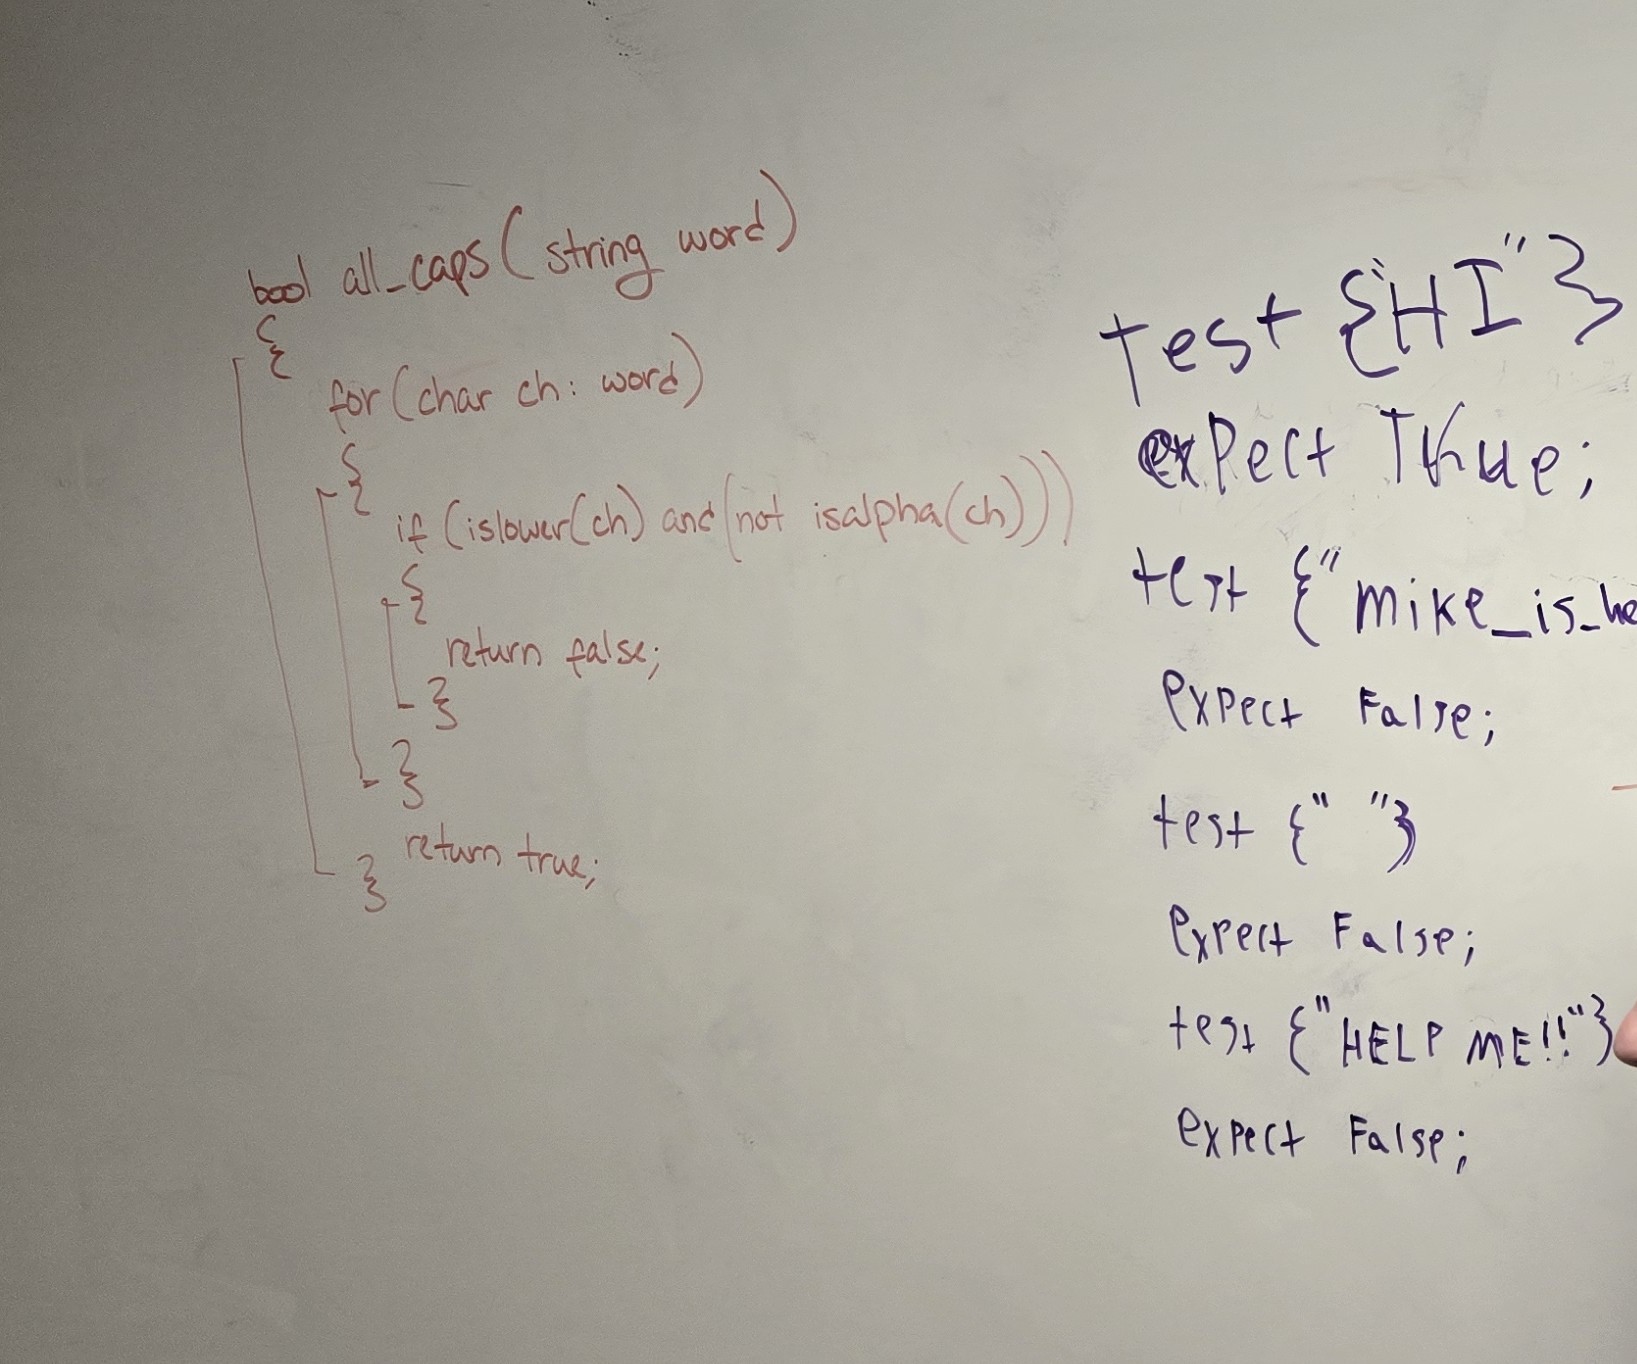 bool all_caps(string word)
{
for(char ch: word)
{
if (islower(ch) and (not isalpha(ch)))
{
return false;
}
}
return true;
}
test {"HI"}
expect True;
test {"mike_is_he
expect False;
test {" "}
expect False;
test {"HELP ME!!"}
expect False;